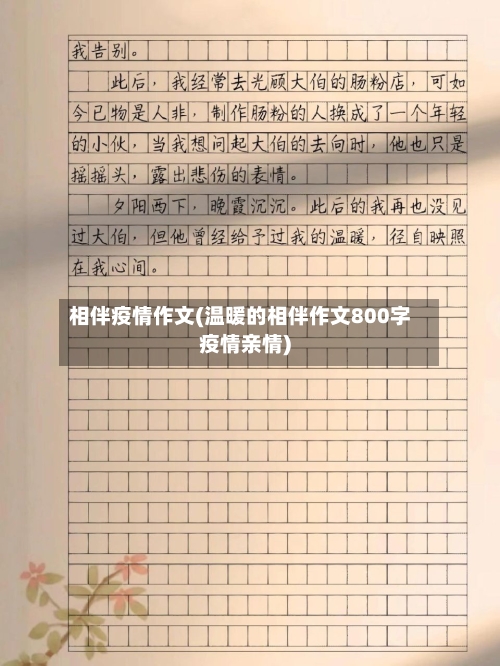 我告别。
此后，我经常去光顾大伯的肠粉店，可如
今已物是人非，制作肠粉的人换成了一个年轻
的小伙，当我想问起大伯的去向时，他也只是
摇摇头，露出悲伤的表情。
夕阳西下，晚霞沉沉。此后的我再也没见
过大伯，但他曾经给予过我的温暖，径自映照
在我心间。
相伴疫情作文(温暖的相伴作文800字
疫情亲情)